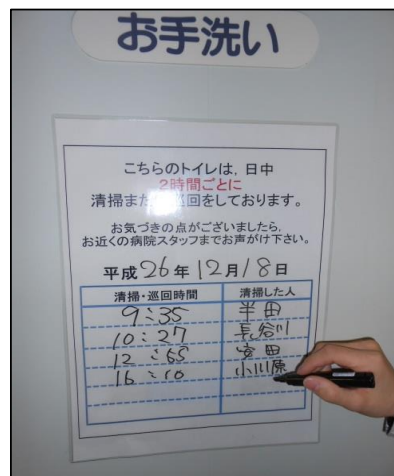 お手洗い
こちらのトイレは, 日中
2時間ごとに
清掃また 巡回をしております。
お気づきの点がございましたら,
お近くの病院スタッフまでお声がけ下さい。
平成26年12月18日
清掃・巡回時間 清掃した人
9:35 半田
10:27 長谷川
12:65 富田
16:10 小川原